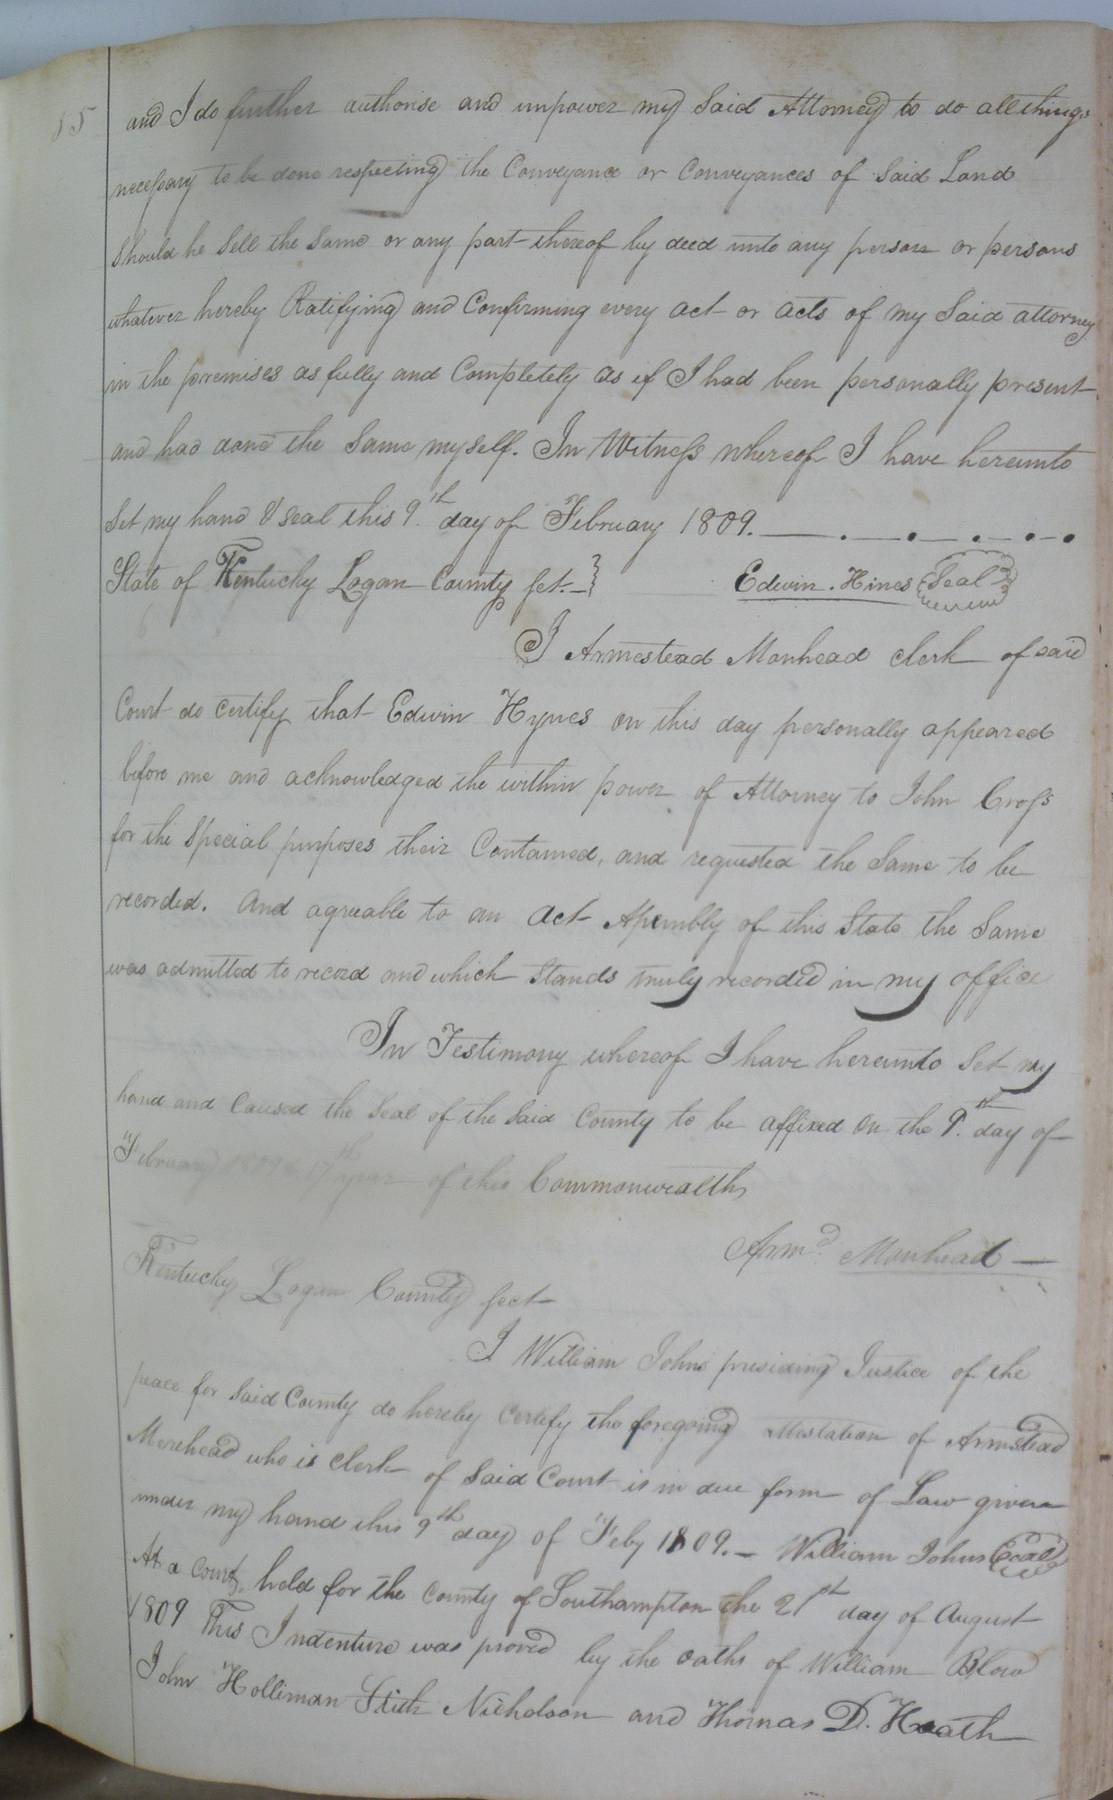 85
and I do further authorise and impower my Said Attorney to do all things
necessary to be done respecting the Conveyance or Conveyances of Said Land
Should he Sell the Same or any part thereof by deed unto any person or persons
whatever hereby Ratifying and Confirming every act or acts of my Said attorney
in the premises as fully and Completely as if I had been personally present
and had done the Same myself. In Witness whereof I have hereunto
Set my hand & seal this 9th day of February 1809.
State of Kentucky Logan County sct. Edwin Hines Seal
I Armestead Morehead clerk of said
Court do certify that Edwin Hynes on this day personally appeared
before me and acknowledged the within power of Attorney to John Cross
for the Special purposes their Contained, and requested the Same to be
recorded. And agreable to an act Assembly of this State the Same
was admitted to record and which Stands truly recorded in my office
In Testimony whereof I have hereunto Set my
hand and Caused the Seal of the Said County to be affixed on the 9th day of
February 1809 & 17th year of this Commonwealth
Armd. Morehead
Kentucky Logan County sect
I William Johns presiding Justice of the
peace for Said County do hereby Certify the foregoing attestation of Armstead
Morehead who is clerk of Said Court is in due form of Law given
under my hand this 9th day of Feby 1809. William Johns Seal
At a Court, held for the County of Southampton the 21st day of August
1809 This Indenture was proved by the oaths of William Blow
John Holliman Stith Nicholson and Thomas D. Heath